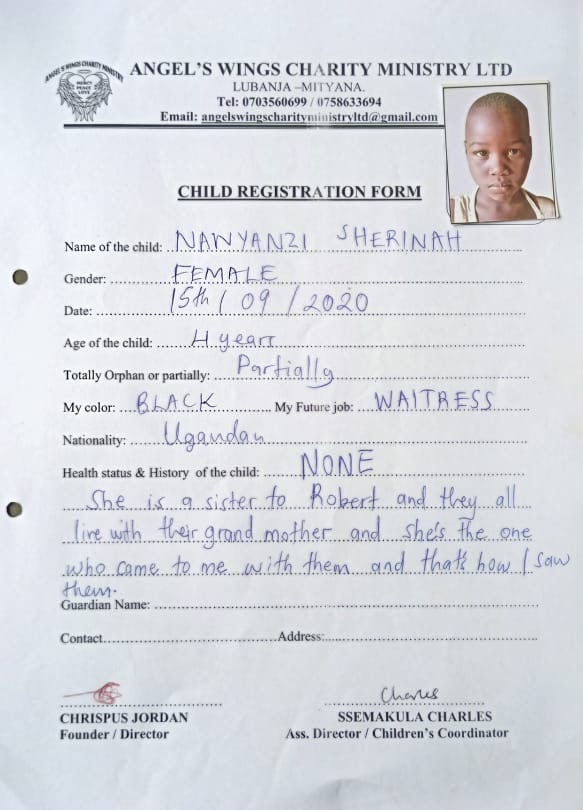 ANGEL'S WINGS CHARITY MINISTRY
MERCY
PEACE
LOVE
ANGEL'S WINGS CHARITY MINISTRY LTD
LUBANJA –MITYANA.
Tel: 0703560699 / 0758633694
Email: angelswingscharityministryltd@gmail.com
CHILD REGISTRATION FORM
Name of the child: NAWYANZI SHERINAH
Gender: FEMALE
Date: 15th / 09 / 2020
Age of the child: 4 years
Totally Orphan or partially: Partially
My color: BLACK My Future job: WAITRESS
Nationality: Ugandan
Health status & History of the child: NONE
She is a sister to Robert and they all
live with their grand mother and she's the one
who came to me with them and that's how I saw
them.
Guardian Name:
Contact Address:
Charles
CHRISPUS JORDAN SSEMAKULA CHARLES
Founder / Director Ass. Director / Children's Coordinator